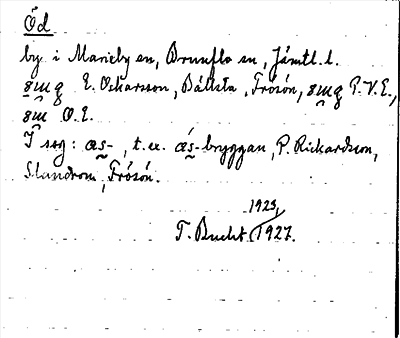 Öd
by i Marieby sn, Brunflo sn, Jämtl. l.
E. Oskarsson, Bällsta, Frösön, P.V.E.,
O.E.
I ssg: æs-, t.ex. æs-bryggan, P. Rickardson,
Frösön.
1923,
T. Bucht 1927.